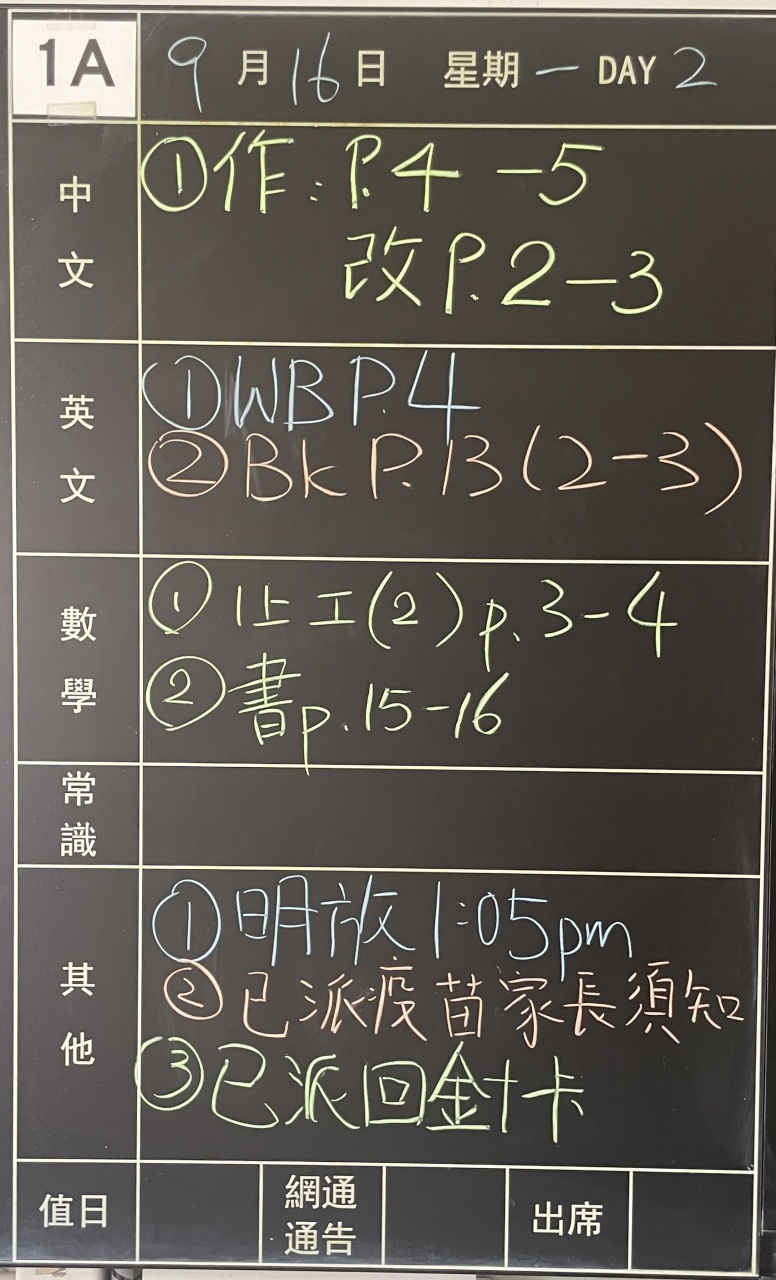 1A 9月16日 星期一 DAY 2
中文
①作:P.4-5
改P.2-3
英文
①WB P.4
②BK P.13(2-3)
數學
①作工(2)p.3-4
②書p.15-16
常識
其他
①明放1:05pm
②已派疫苗家長須知
③已派回針卡
值日
網通
通告
出席